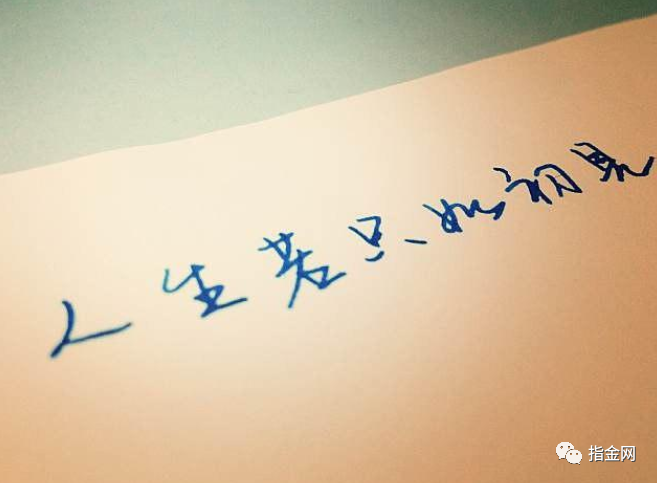 人生若只如初见
指金网